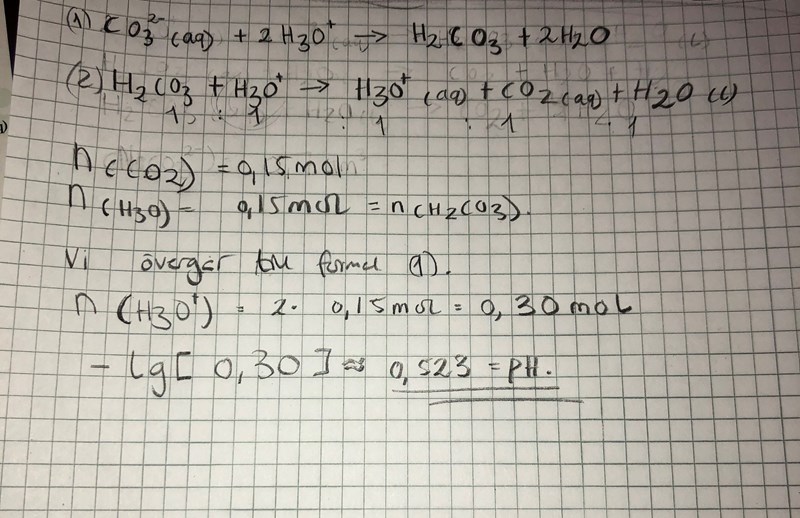 (1) CO3^2- (aq) + 2 H3O+ → H2CO3 + 2H2O
(2) H2CO3 + H3O+ → H3O+ (aq) + CO2 (aq) + H2O (l)
1 : 1 : 1 : 1 : 1
n (CO2) = 0,15 mol
n (H3O) = 0,15 mol = n (H2CO3).
Vi övergår till formel (1).
n (H3O+) = 2 · 0,15 mol = 0,30 mol
- lg [ 0,30 ] ≈ 0,523 = pH.